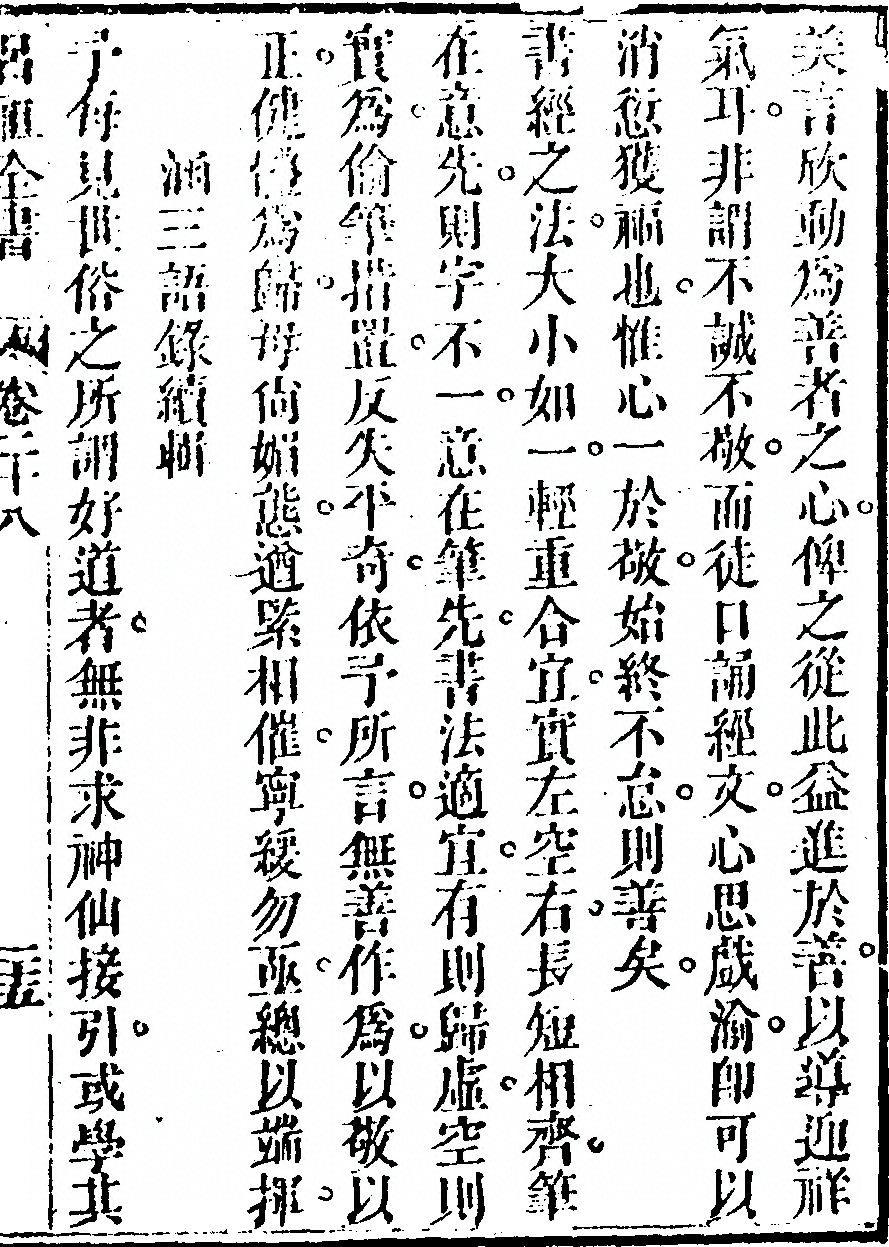 美言欣動爲善者之心。俾之從此益進於善。以導迎祥
氣耳。非謂不誠不敬。而徒口誦經文。心思戲渝。即可以
消愆獲福也。惟心一於敬。始終不怠。則善矣。
書經之法。大小如一。輕重合宜。實左空右。長短相齊。筆
在意先。則字不一。意在筆先。書法適宜。有則歸虛。空則
實爲。偷筆措置。反失平奇。依予所言。無善作爲。以敬以
正。健僊爲歸。毋尙媚態。遒緊相催。寧緩勿亟。總以端揮。
涵三語錄續輯
予每見世俗之所謂好道者。無非求神仙接引。或學其
呂祖全書 卷二十八 二十五